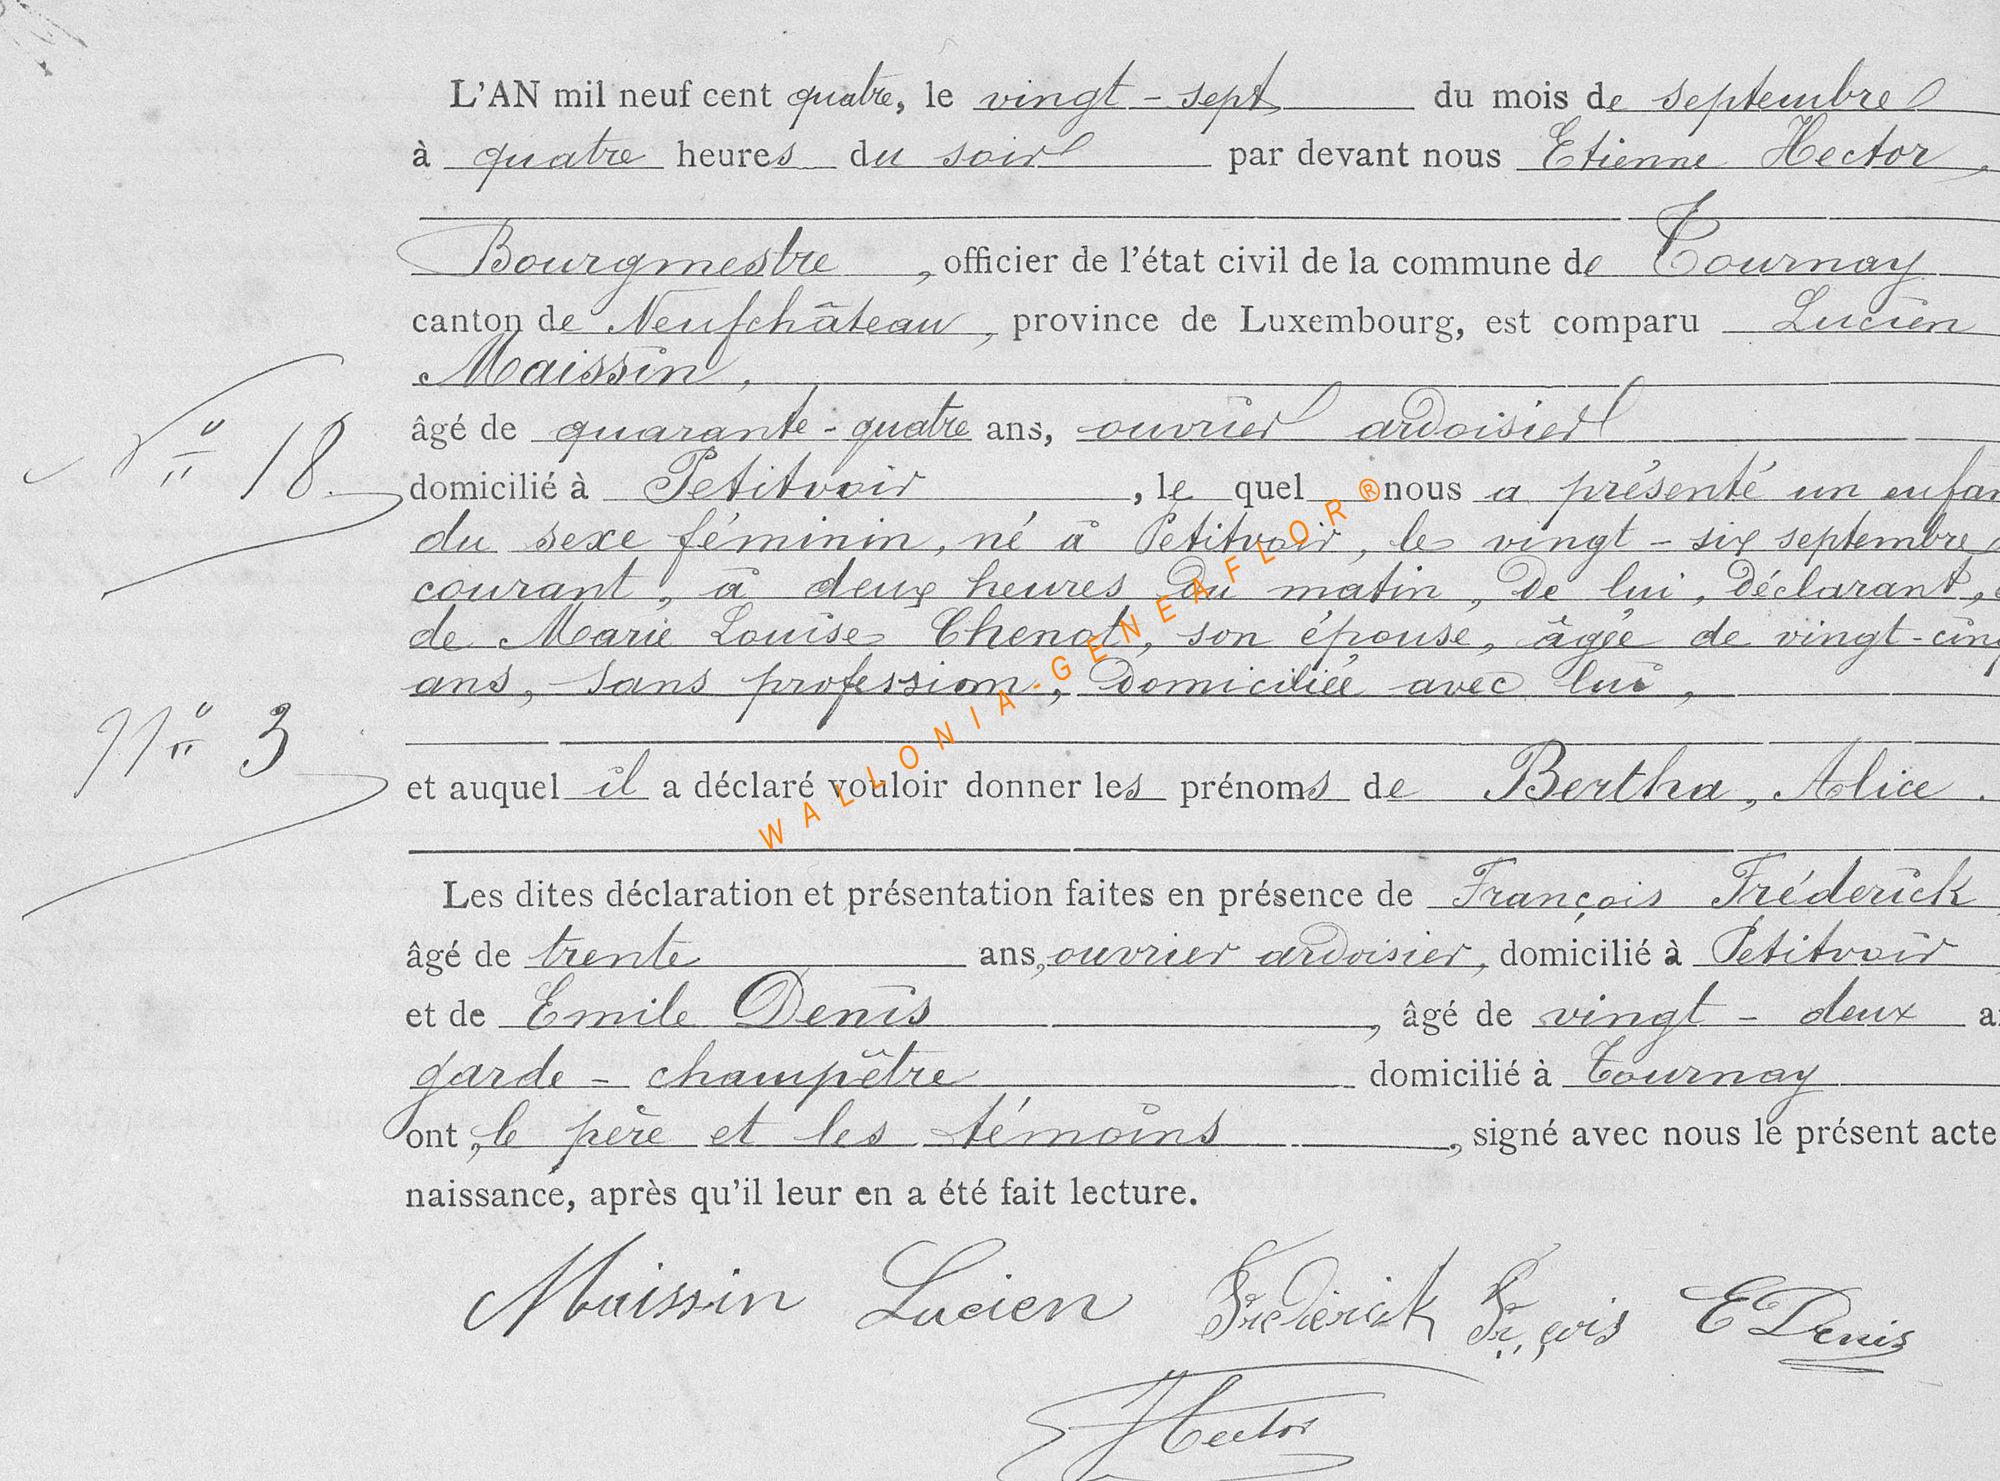 L'AN mil neuf cent quatre, le vingt-sept du mois de septembre
à quatre heures du soir par devant nous Etienne Hector,
Bourgmestre, officier de l'état civil de la commune de Tournay
canton de Neufchâteau, province de Luxembourg, est comparu Lucien
Maissin,
âgé de quarante-quatre ans, ouvrier ardoisier
N° 18
domicilié à Petitvoir, le quel nous a présenté un enfan
du sexe féminin, né à Petitvoir, le vingt-six septembre
courant, à deux heures du matin, de lui, déclarant,
de Marie Louise Chenot, son épouse, âgée de vingt-cinq
ans, sans profession, domiciliée avec lui,
N° 3
et auquel il a déclaré vouloir donner les prénoms de Bertha, Alice.
Les dites déclaration et présentation faites en présence de François Fréderick
âgé de trente ans, ouvrier ardoisier, domicilié à Petitvoir
et de Emile Denis, âgé de vingt-deux a
garde-champêtre domicilié à Tournay
ont, le père et les témoins, signé avec nous le présent acte
naissance, après qu'il leur en a été fait lecture.
Maissin Lucien Frederick Frçois E Denis
Hector
WALLONIA-GENEAFLOR®